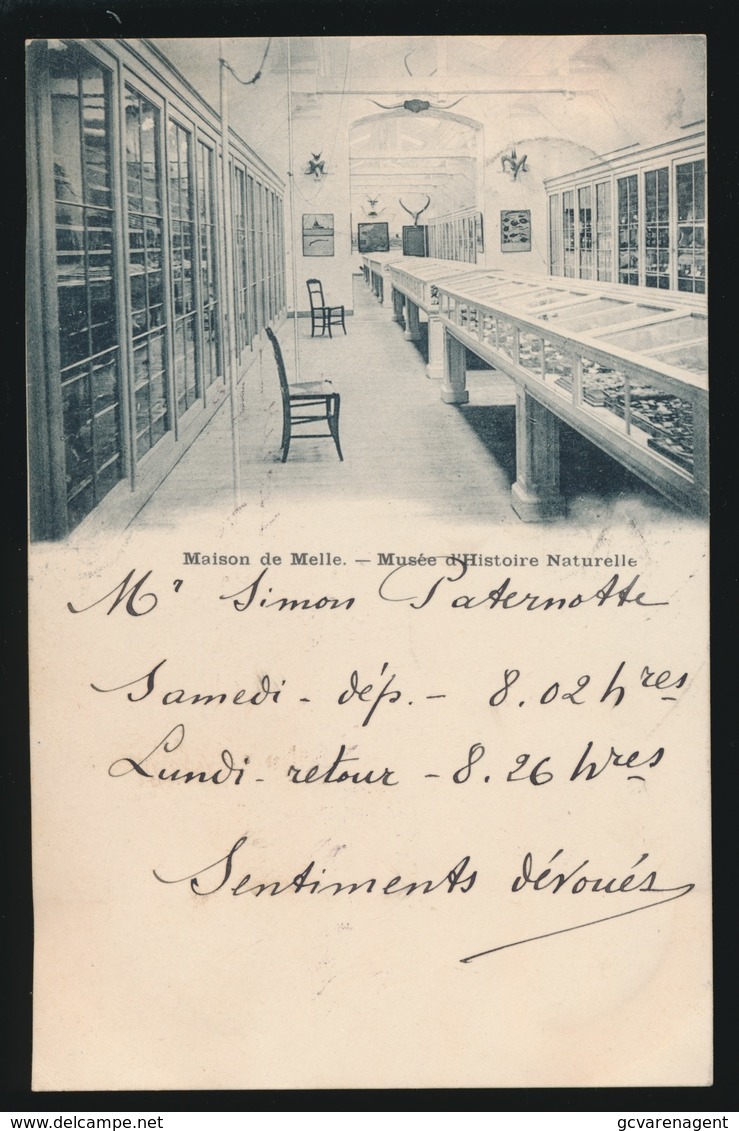 Maison de Melle. — Musée d'Histoire Naturelle
Mr Simon Paternotte
Samedi - dép. - 8.02 hres
Lundi - retour - 8.26 hres
Sentiments dévoués
delcampe.net
gcvarenagent